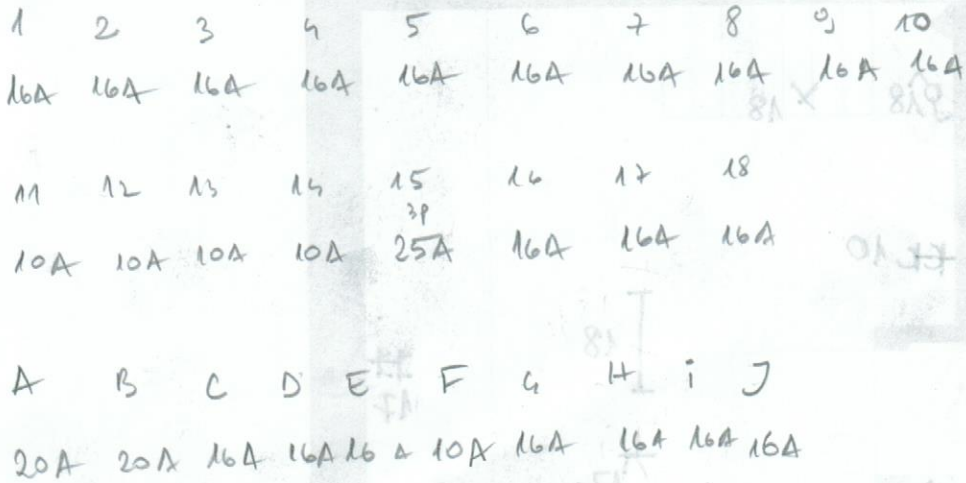 1 2 3 4 5 6 7 8 9 10
16A 16A 16A 16A 16A 16A 16A 16A 16A 16A
11 12 13 14 15 16 17 18
3P
10A 10A 10A 10A 25A 16A 16A 16A
A B C D E F G H i J
20A 20A 16A 16A 16A 10A 16A 16A 16A 16A